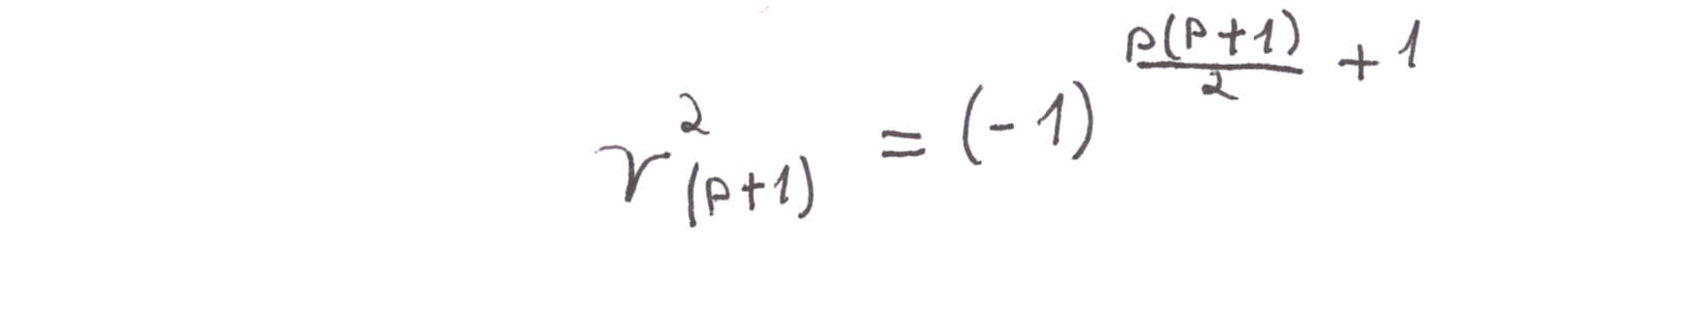 γ²_{(p+1)} = (-1)^{\frac{p(p+1)}{2} + 1}